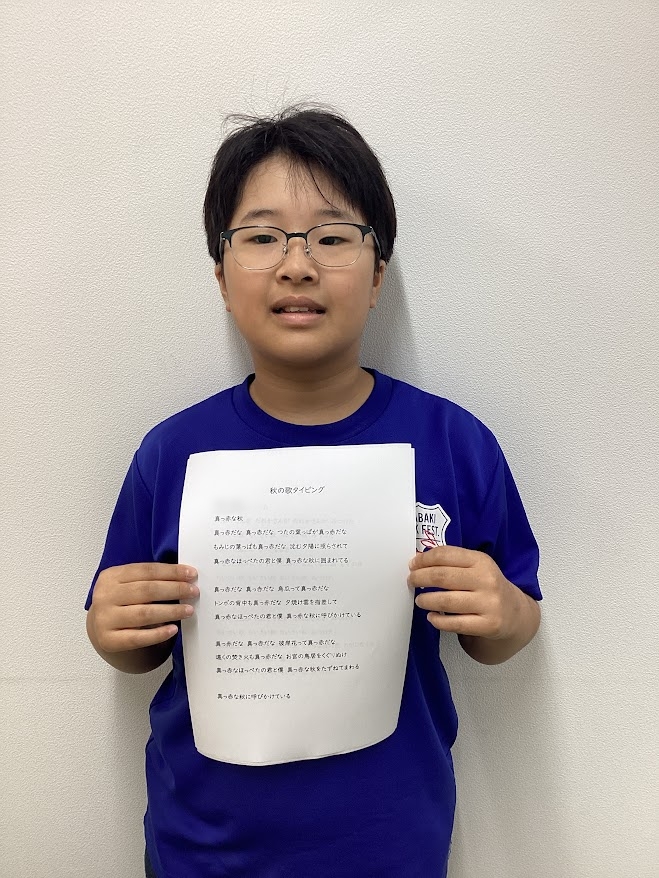 秋の歌タイピング
真っ赤な秋
真っ赤だな 真っ赤だな つたの葉っぱが真っ赤だな
もみじの葉っぱも真っ赤だな 沈む夕陽に照らされて
真っ赤なほっぺたの君と僕 真っ赤な秋に囲まれてる
真っ赤だな 真っ赤だな 烏瓜って真っ赤だな
トンボの背中も真っ赤だな 夕焼け雲を指差して
真っ赤なほっぺたの君と僕 真っ赤な秋に呼びかけている
真っ赤だな 真っ赤だな 彼岸花って真っ赤だな
遠くの焚き火も真っ赤だな お宮の鳥居をくぐりぬけ
真っ赤なほっぺたの君と僕 真っ赤な秋をたずねてまわる
真っ赤な秋に呼びかけている
ABAKI
FEST.